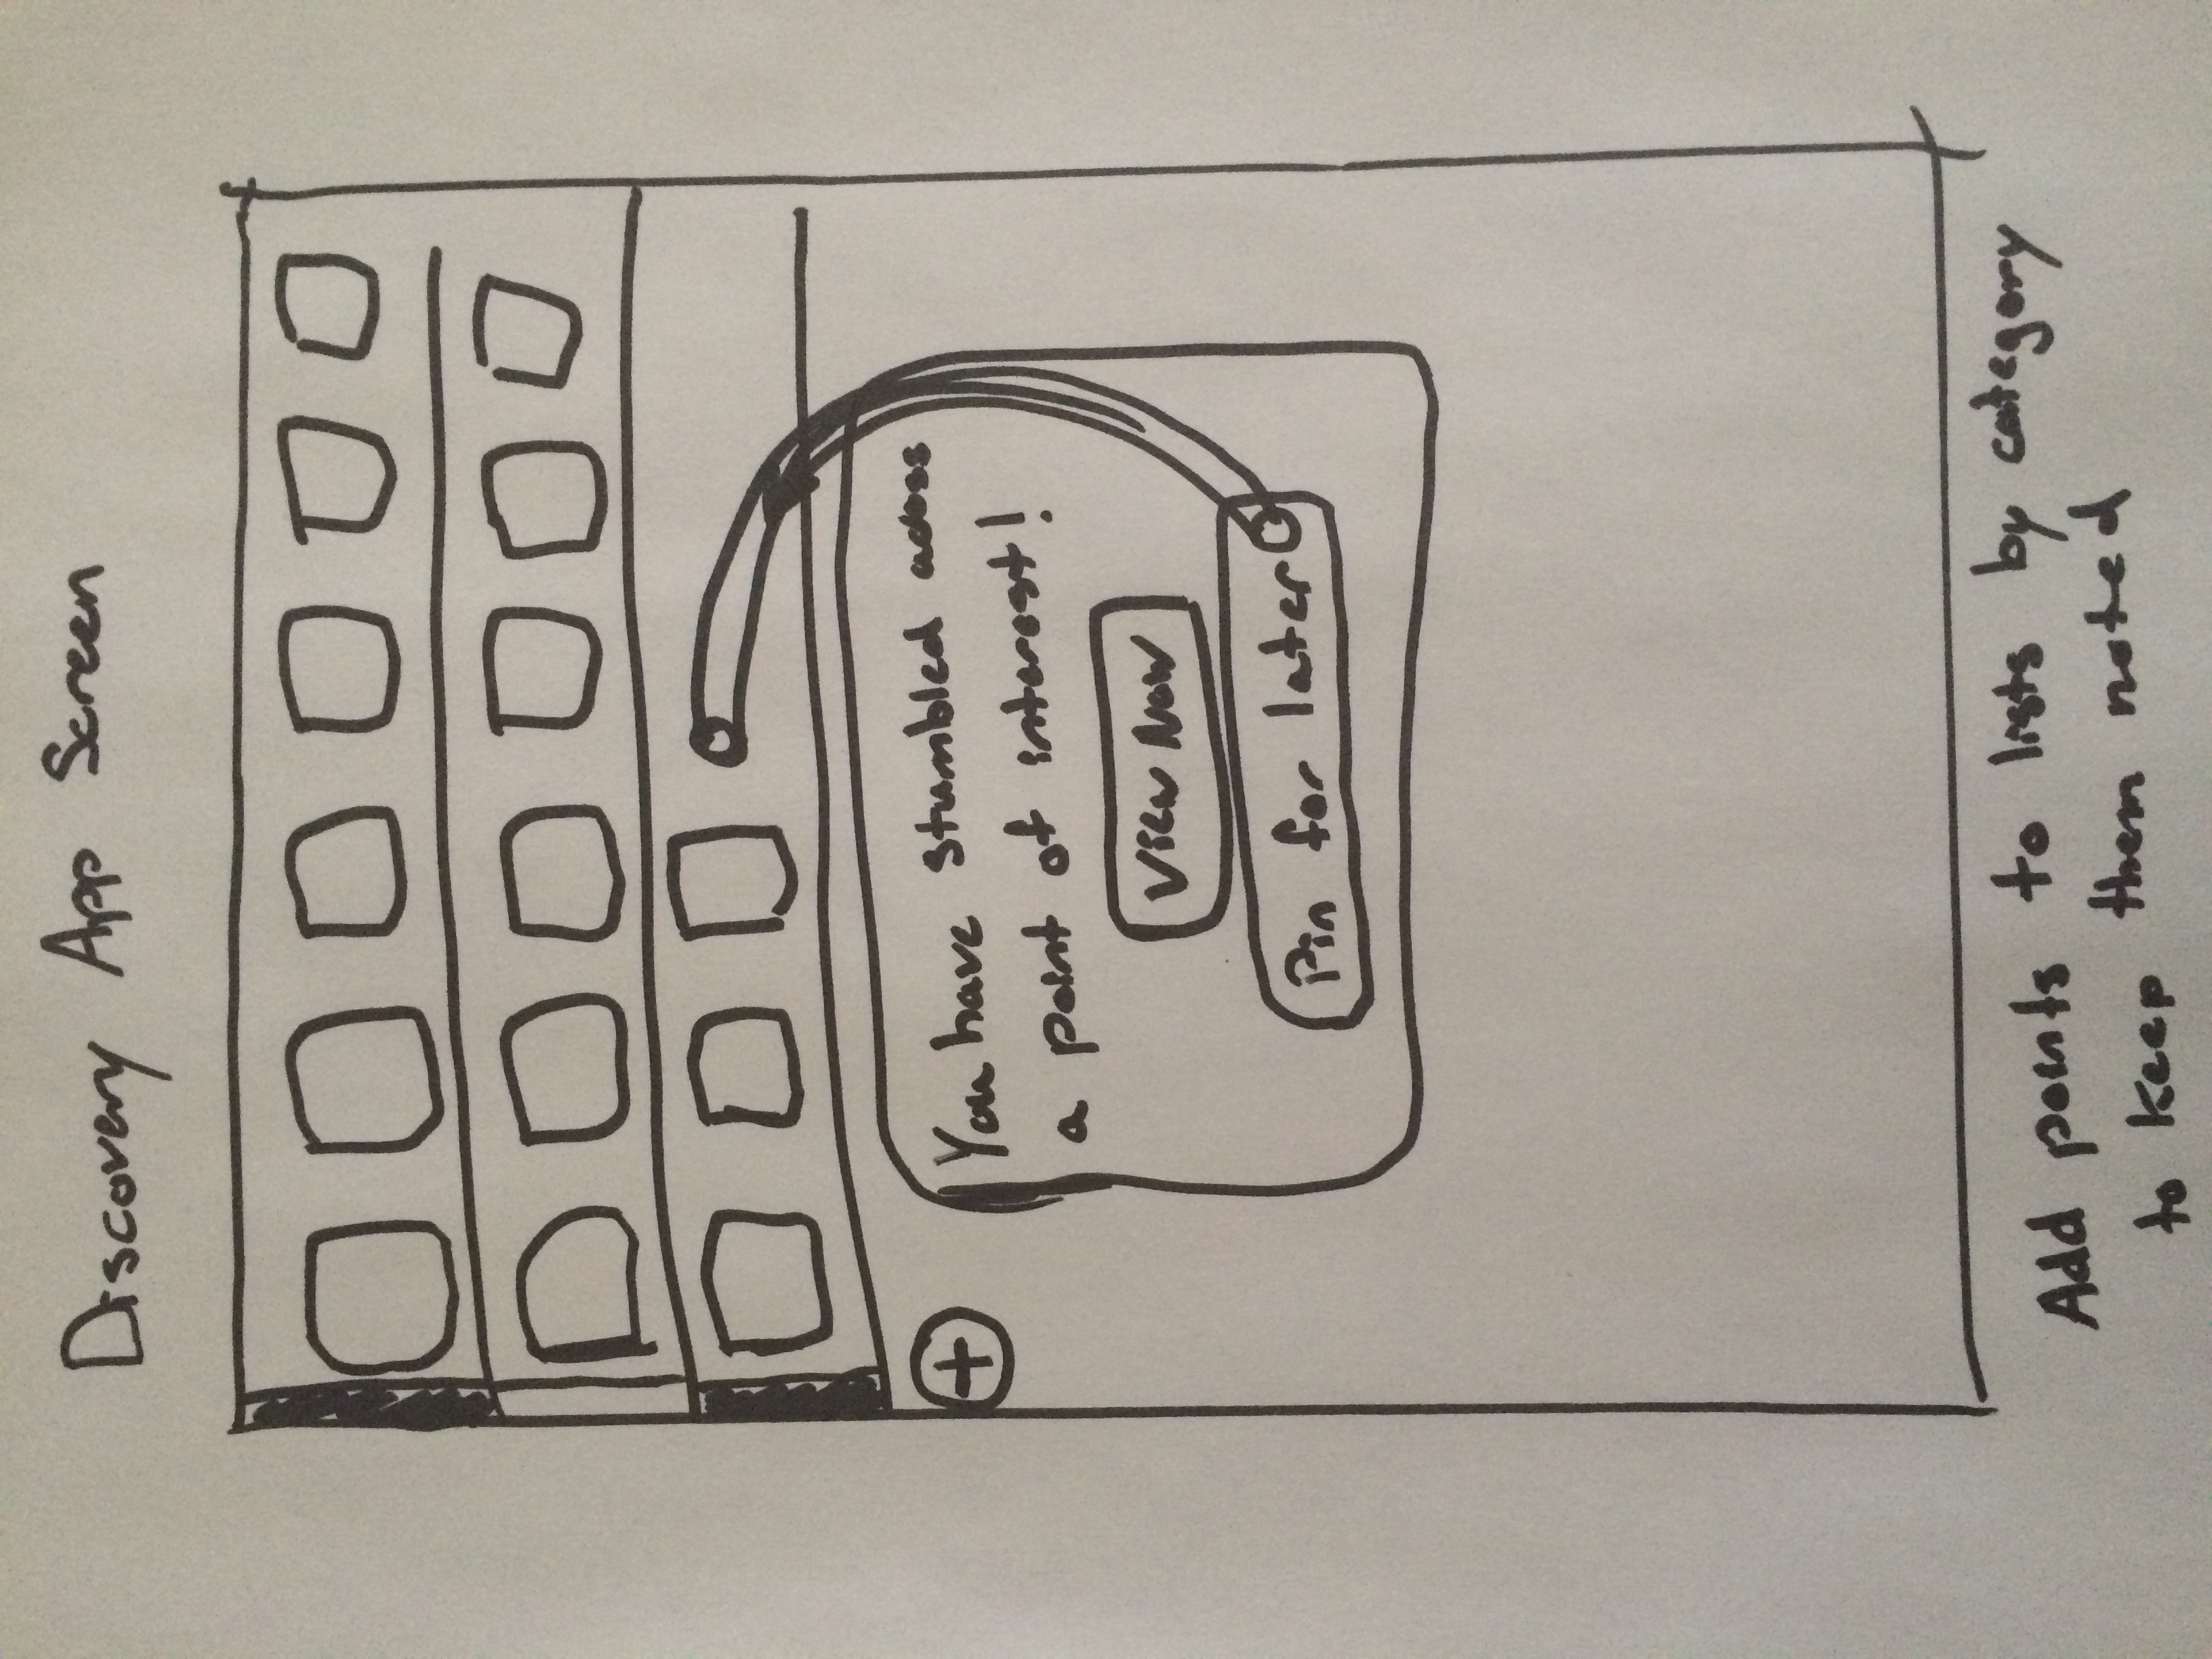 Discovery App Screen
You have stumbled acoss
a point of interest!
View Now
Pin for later
Add points to lists by category
to keep them noted